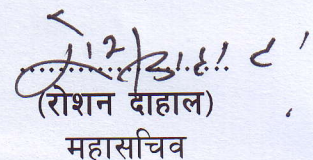 (रोशन दाहाल)
महासचिव